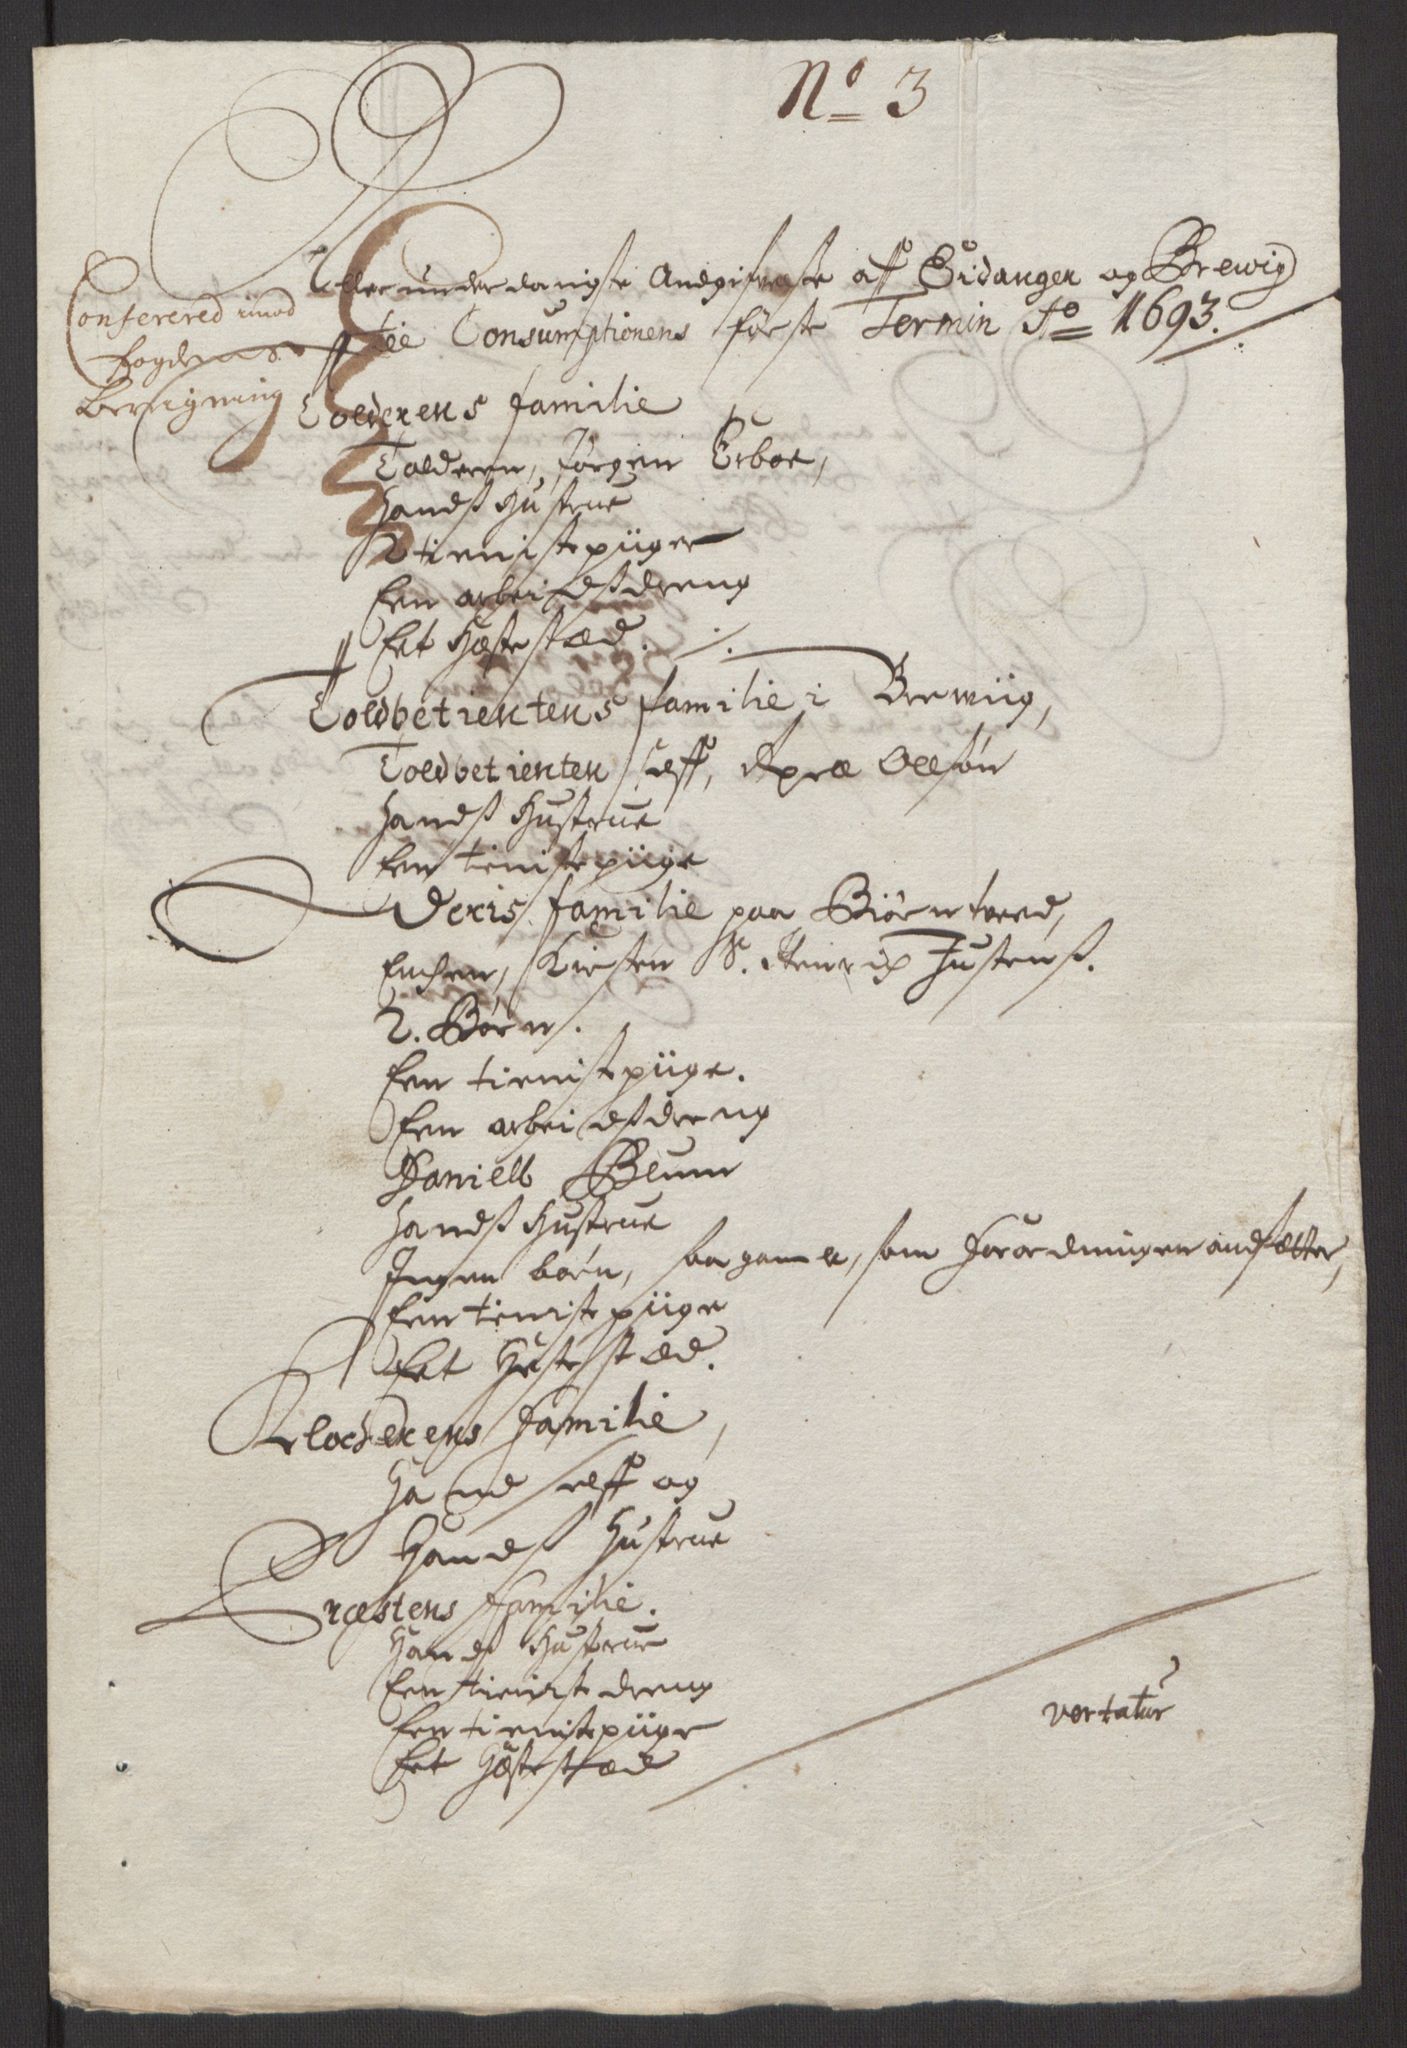 No 3
Conferered imod
fogdens
beregning
Aller underdanigste Andgifvelse aff Eidanger og Brewig
till Consumptionens første Termin Ao 1693.
Tolderens familie
Tolderen, Jørgen Erboe,
Handß Hustrue
2 tienistepiiger
Een arbeidßdreng
Eet Hestestæd
Toldbetientens familie i Brewiig,
Toldbetienten self, Ollsøn
Handß Hustrue
Een tienistepiige
familie paa Biørntvæd,
Enchen, Kirsten S. Henrich Justens.
2. Børn.
Een tienistepiige.
Een arbeidßdreng
Daniell Blum
Handß Hustrue
Ingen børn, saa gamle, som Forordningen andsætter,
Een tienistepiige
Eet Hestestæd.
Klocherens Familie,
Hand selff og
Handß Hustrue
Præstens Familie.
Handß Hustrue
Een tieniste dreng
Een tienistepiige
Eet Hæstestæd
vertatur